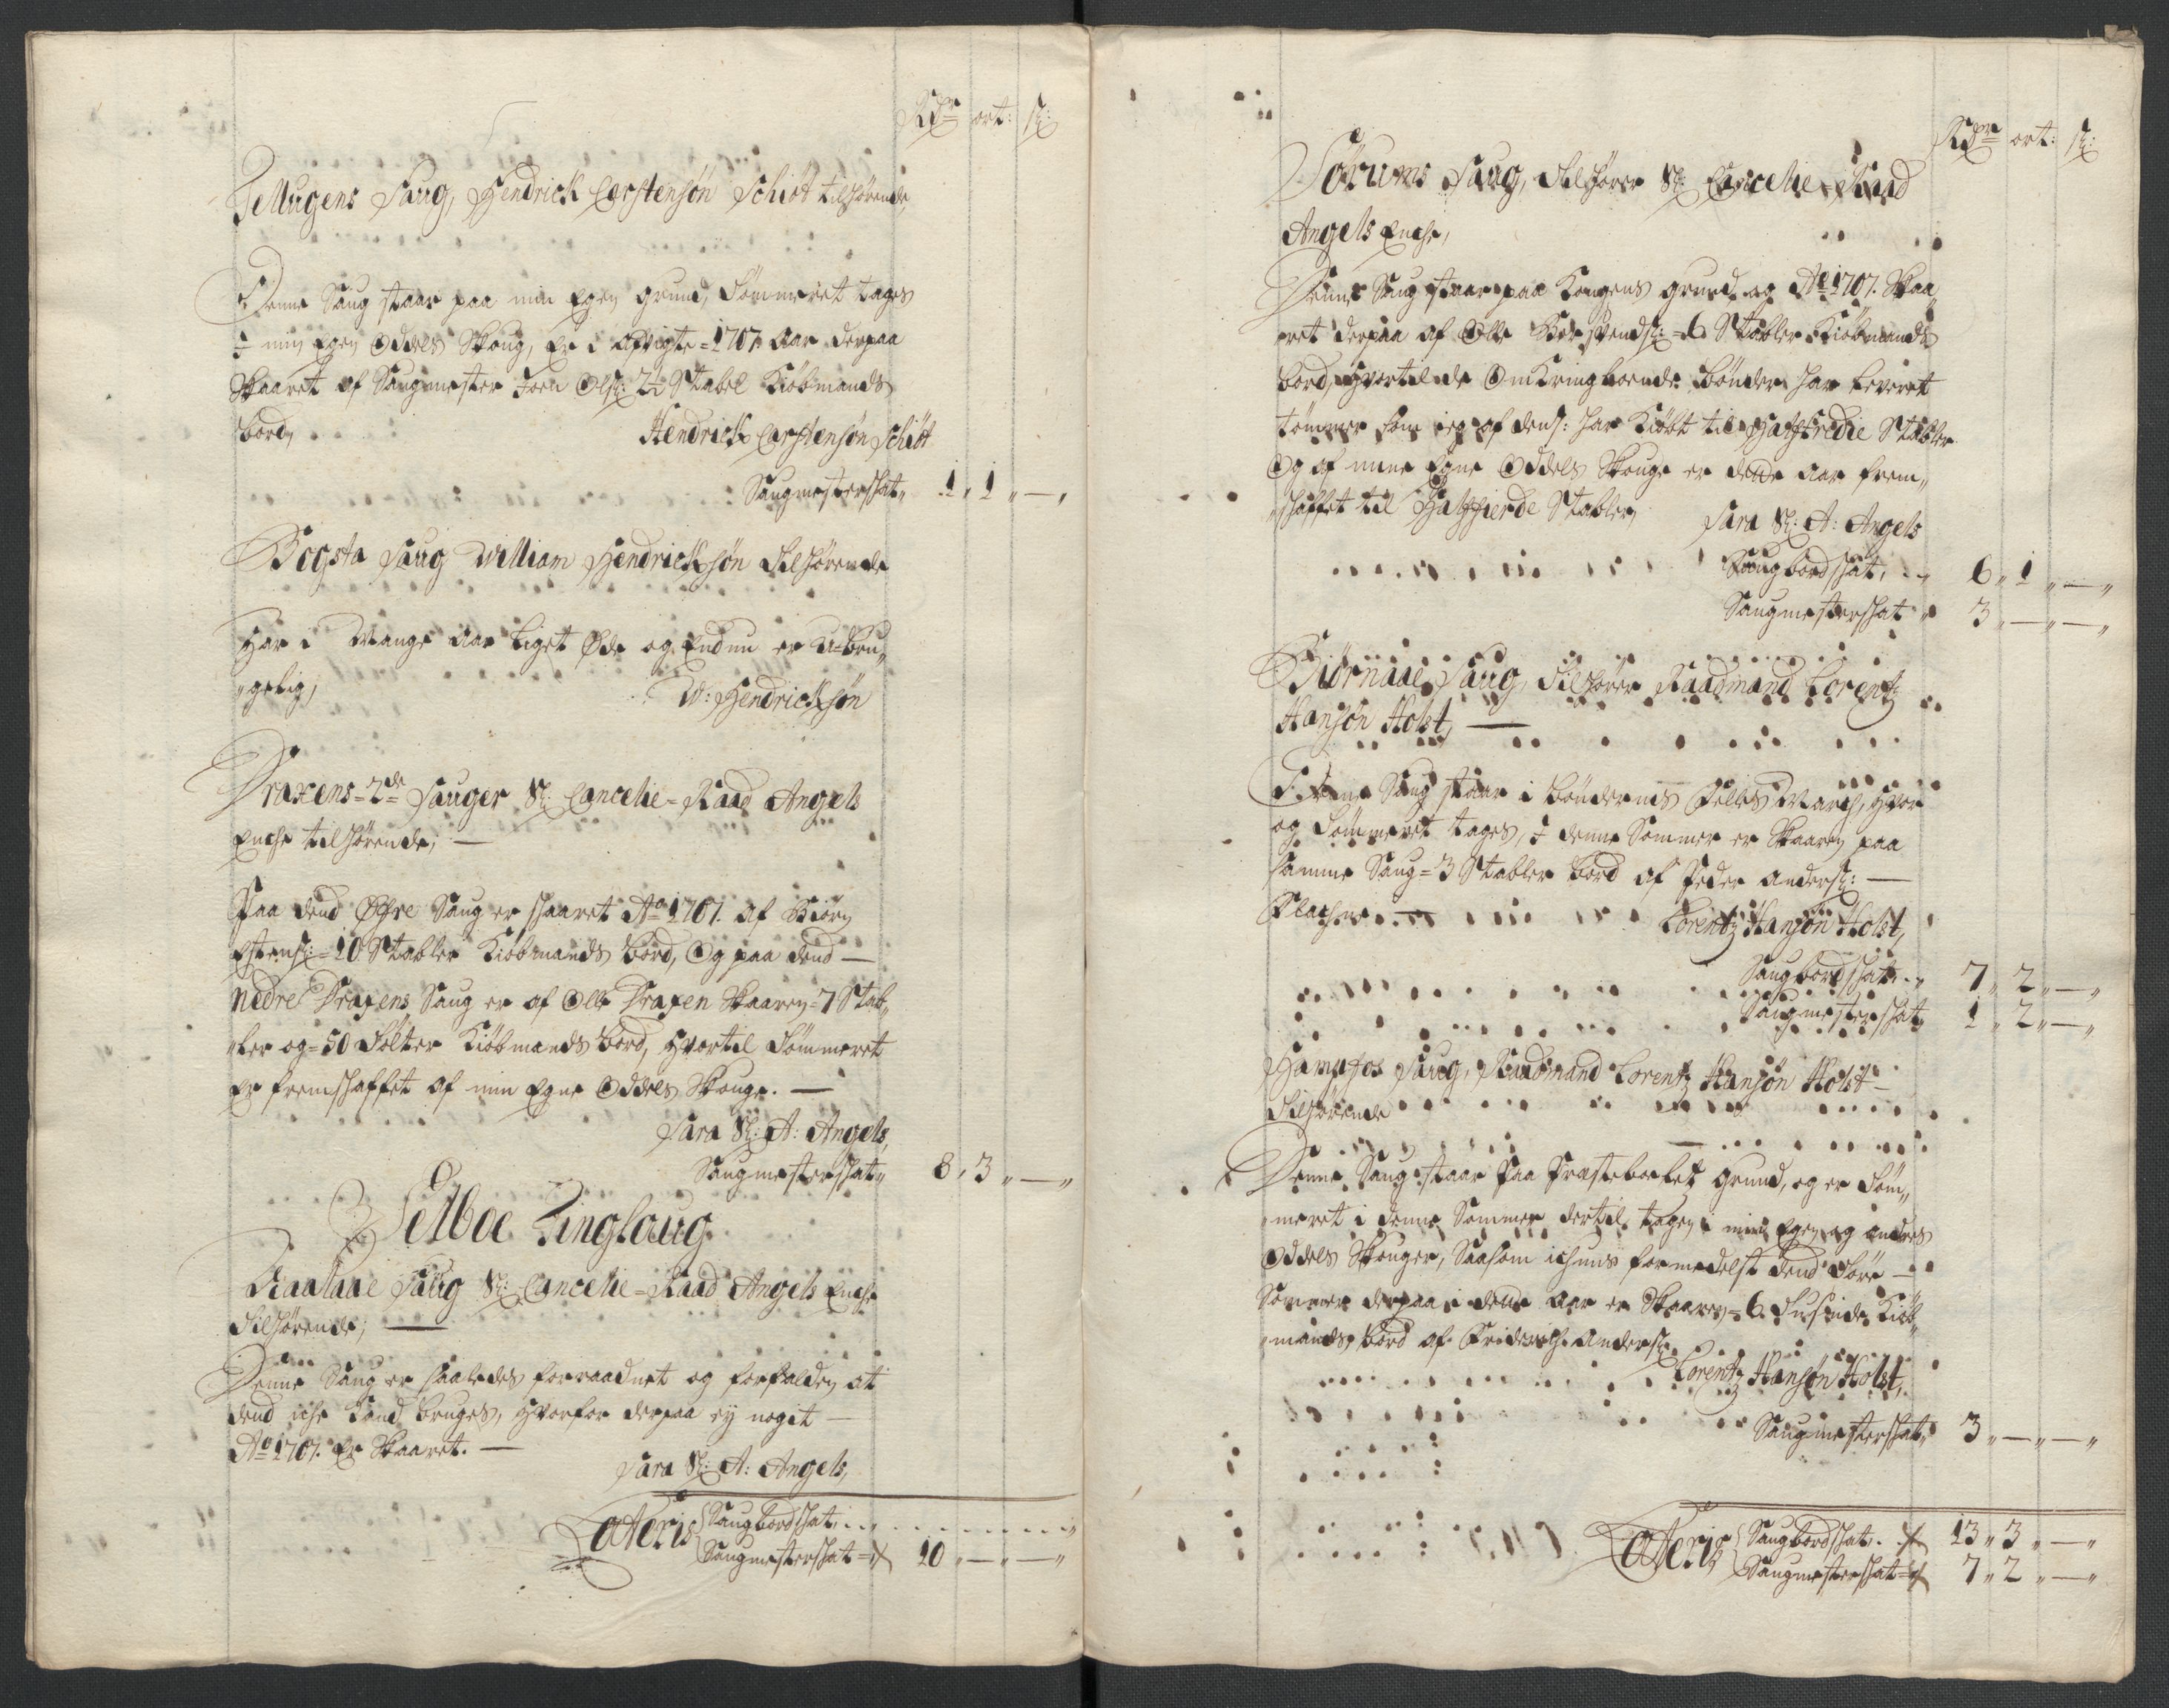 Rdr ort: s:
Tellugens Saug, Hendrick Carstensøn Schiøt tilhørende
Denne Saug staar paa min Egen grund, Tømmeret tages
I min Egen Odels Skoug, Er i afvigte 1707 Aar derpaa
Skaaret af Saugmester Joen Ols: 2½ Stabel Kiøbmands
bord, Hendrick Carstensøn Schiøt
Saugmesterskat, 1 „ 1 „ — „
Bogsta Saug William Hendrickhøn Tilhørende
Har i Mange Aar liget Øde og Endnu er U-bru„
„gelig, W: Hendrickhøn
Draxens 2de Sauger Sl: Cancelie-Raad Angels
Enche tilhørende, —
Paa dend Øfre Saug er skaaret Ao 1707 af Biørn
Estens: 10 Stabler Kiøbmands bord, Og paa dend —
nedre Draxens Saug er af Olle Draxen Skaaren 7 Stab„
„ler og 50 Tolter Kiøbmands bord, Hvortil Tømmeret
Er fremskaffet af min Egne Odels Skouge. —
Sara Sl: A: Angels,
Saugmesterskat „ 8 „ 3 „ — „
Selboe Tinglaug
Raalaae Saug Sl: Cancelie-Raad Angels Enche
Tilhørende, —
Denne Saug er saaledes forraadnet og forfalden at
dend iche Kand bruges, Hvorfor derpaa ey noget —
Ao 1707. Er Skaaret. —
Sara Sl: A: Angels,
Lateris Saugbordskat, . . .
Saugmesterskat 10 „ — „ — „
Rdr ort: s:
Sørums Saug, Tilhører Sl: Cancelie-Raad
Angels Enche,
Denne Saug staar paa Kongens grund og Ao 1707. Skaa„
„ret derpaa af Olle Svends: 6 Stabler Kiøbmands
bord, Hvortil de Omkringboende Bønder har leveret
tømmer som ieg af dens: har Kiøbt til Halftredie Stabler
Og af mine Egne Odels Skouge er dette Aar frem„
„skaffet til Halffierde Stabler, Sara Sl: A: Angels
Saugbordskat, 6 „ 1 „ — „
Saugmesterskat „ 3 „ — „ — „
Biørnaae Saug, Tilhører Raadmand Lorentz
Hansøn Holst, —
Denne Saug staar i Bøndernis Felles March, Hvor
og Tømmeret tages, I denne Sommer er Skaaren paa
samme Saug 3 Stabler bord af Peder Anders: —
Flachne Lorentz Hansøn Holst,
Saugbordskat „ 7 „ 2 „ — „
Saugmesterskat „ 1 „ 2 „ — „
Hampfos Saug, Raadmand Lorentz Hansøn Holst —
Tilhørende
Denne Saug staar Paa Præstebolet grund, og er Tøm„
„meret i denne Sommer dertil tagen i min Egen og andres
Odels Skouger, Saasom ichuns formedelst dend Tørre —
Sommer derpaa i dette Aar er Skaaren 6 Tusinde Kiøb„
„mands bord af Friderich Anders:
Lorentz Hansøn Holst,
Saugmesterskat, 3 „ — „ — „
Lateris Saugbordskat. 13 „ 3 „ — „
Saugmesterskat 7 „ 2 „ — „